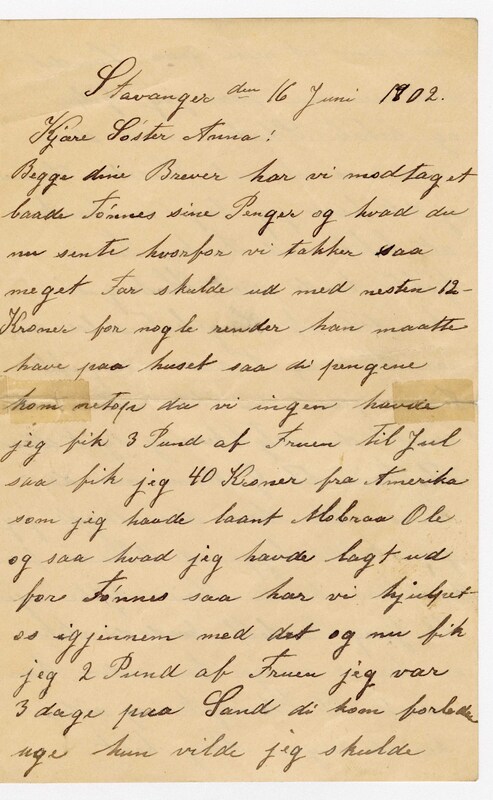 Stavanger den 16 Juni 1902.
Kjære Søster Anna!
Begge dine Brever har vi modtaget
baade Tønnes sine Penger og hvad du
nu sente hvorfor vi takker saa
meget Far skulde ud med nesten 12-
Kroner for nogle render han maatte
have paa huset saa di pengene
kom netop da vi ingen havde
jeg fik 3 Pund af Fruen til Jul
saa fik jeg 40 Kroner fra Amerika
som jeg haade laant Ole
og saa hvad jeg havde lagt ud
for Tønnes saa har vi hjulpet
os igjennem med det og nu fik
jeg 2 Pund af Fruen jeg var
3 dage paa Sand di kom forlede
uge hun vilde jeg skulde